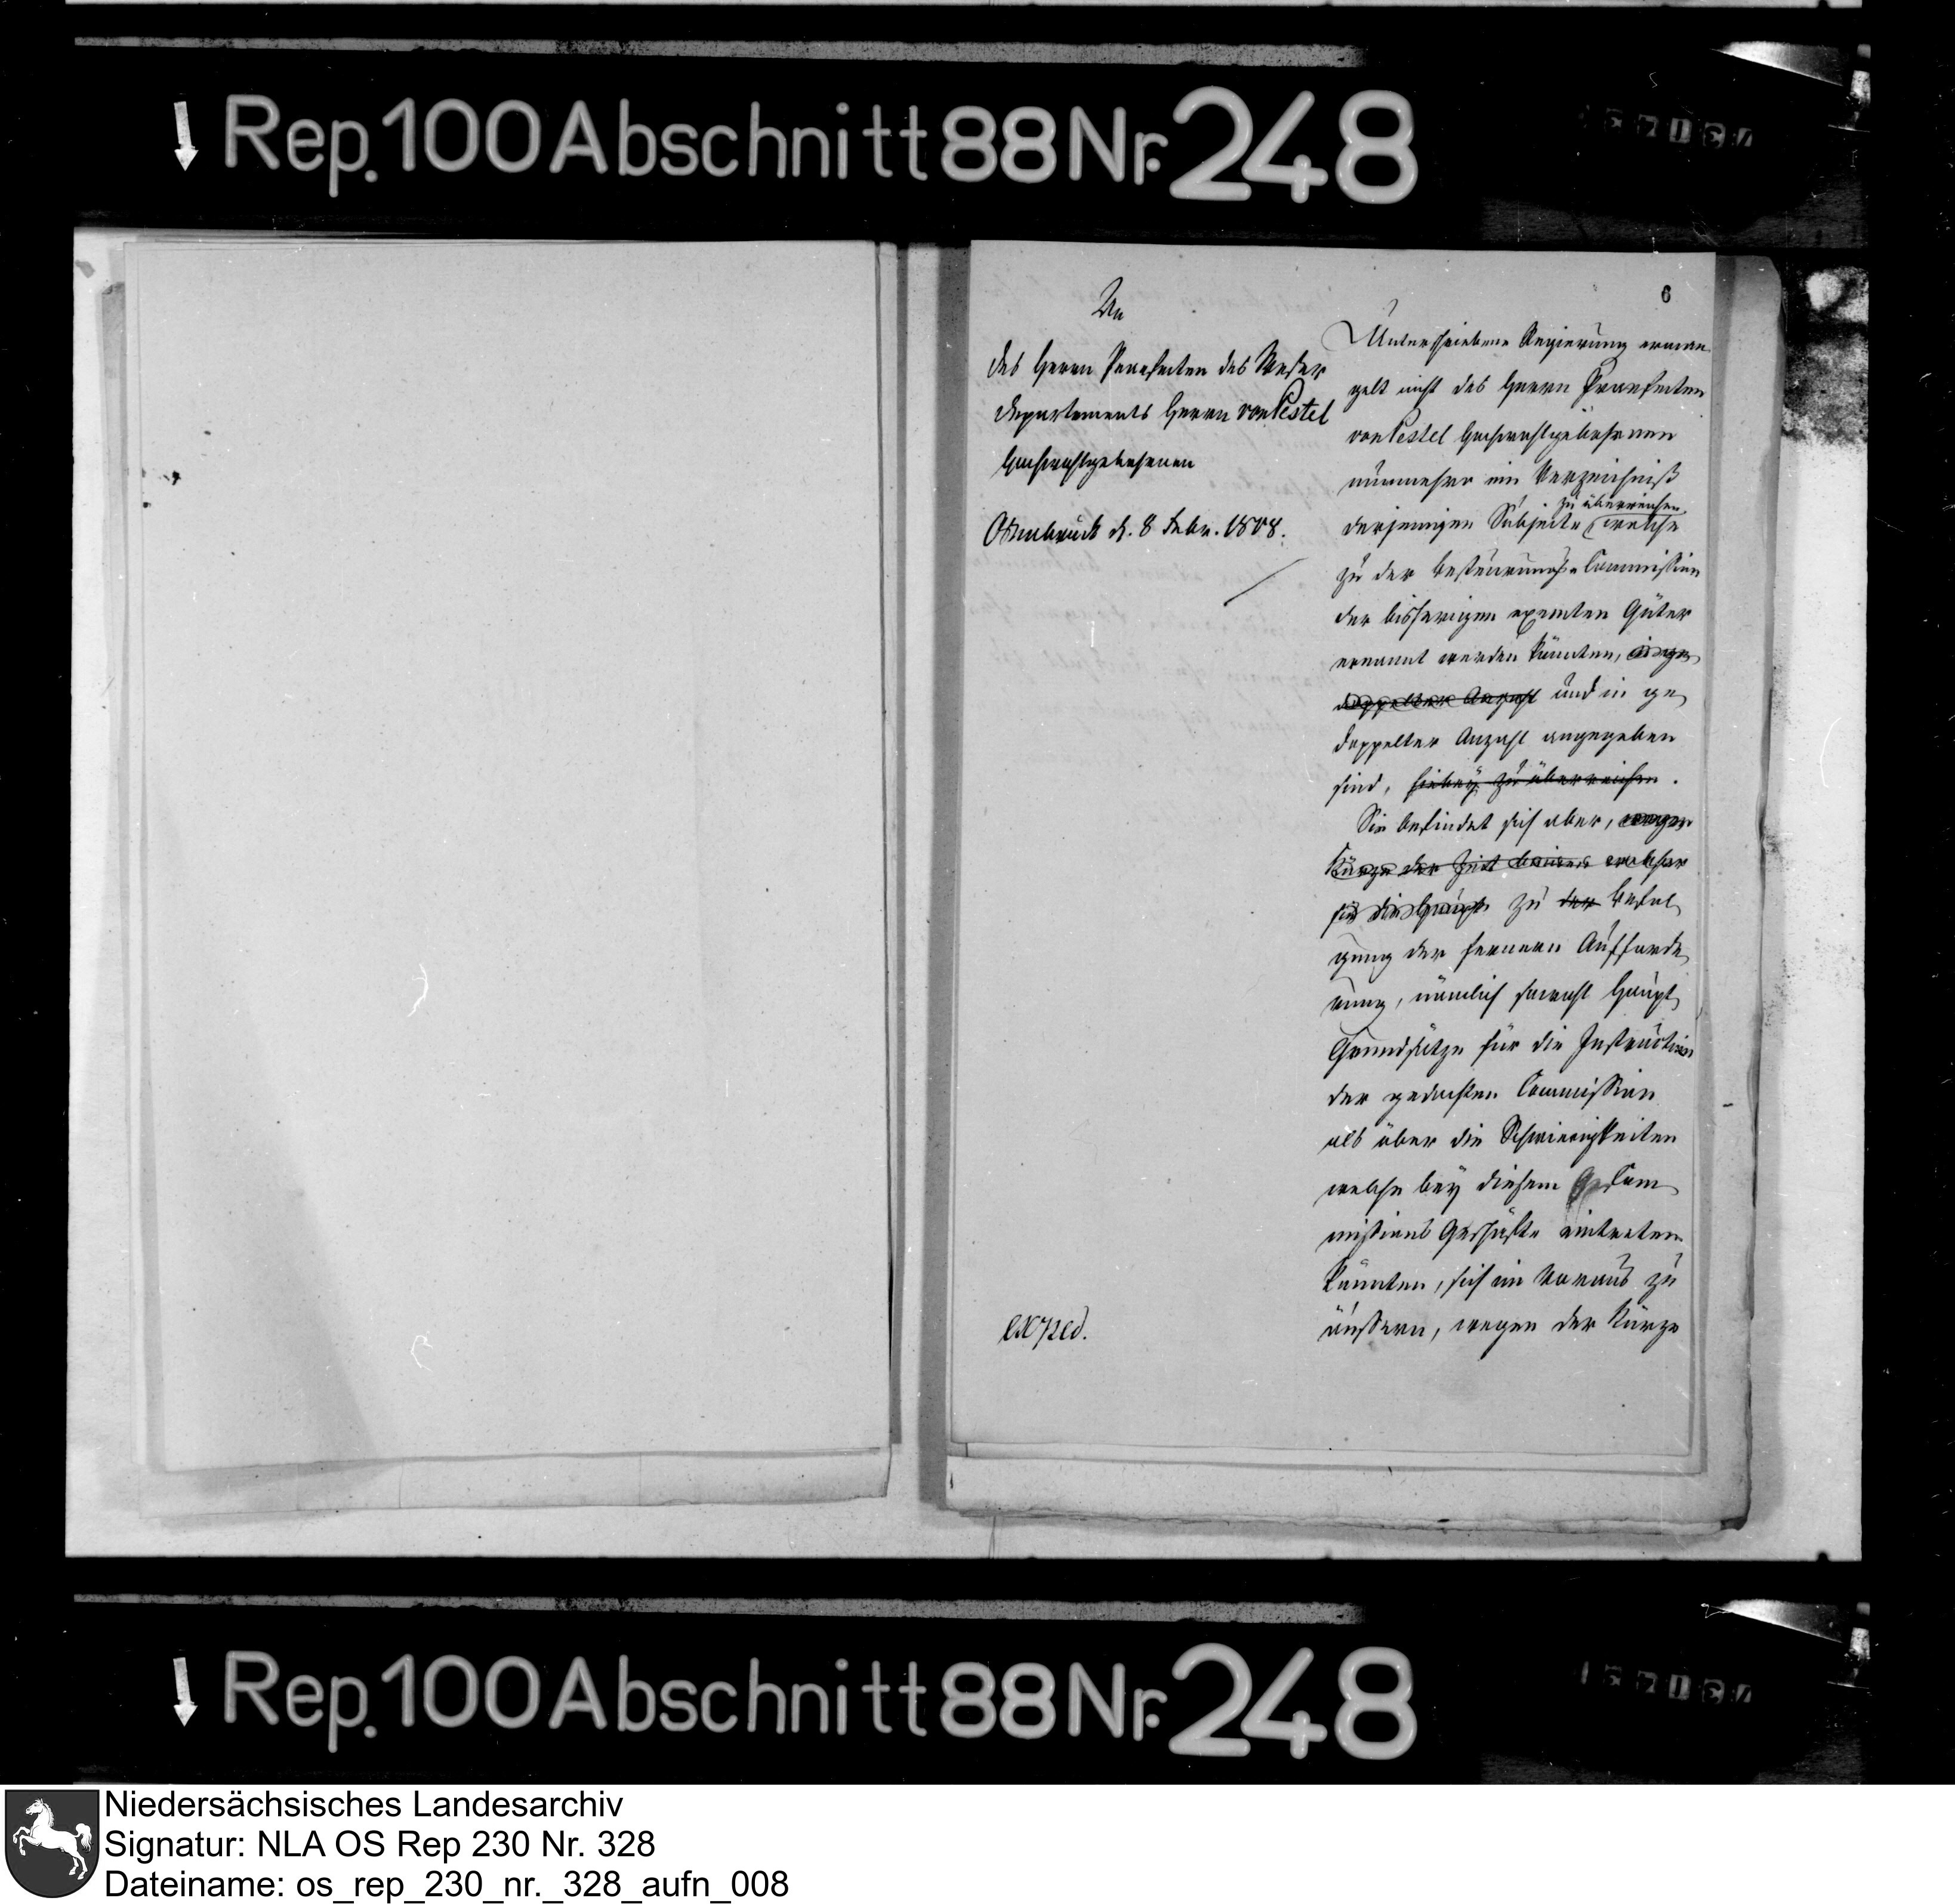 Rep. 100 Abschnitt 88 Nr. 248
6
An
des Herrn Praefecten des Weser
departements Herrn von Pestel
Hochwohlgebohrnen
Osnabrück d. 8 Febr. 1808.
Unterschriebene Regierung erman
gelt nicht des Herrn Praefecten
von Pestel Hochwohlgebohrnen
nunmehro ein Verzeichniß
zu überreichen
derjenigen Subjecte welche
zu der Besteurungs-Commission
der bisherigen exemten Güter
ernannt werden könnten, in ge
doppelter Anzahl und in ge
doppelter Anzahl angegeben
sind, hiebey zu überreichen.
Sie befindet sich aber, wegen
Kürze der Zeit welcher
für die Haupt zu der Befol
gung der fernern Aufforde
rung, nämlich sowohl Haupt
Grundsätze für die Instruction
der gedachten Commission
als über die Schwierigkeiten
welche bey diesem Com
missions Geschäfte eintreten
könnten, sich im Voraus zu
äussern, wegen der Kürze
exped.
Rep. 100 Abschnitt 88 Nr. 248
Niedersächsisches Landesarchiv
Signatur: NLA OS Rep 230 Nr. 328
Dateiname: os_rep_230_nr._328_aufn_008